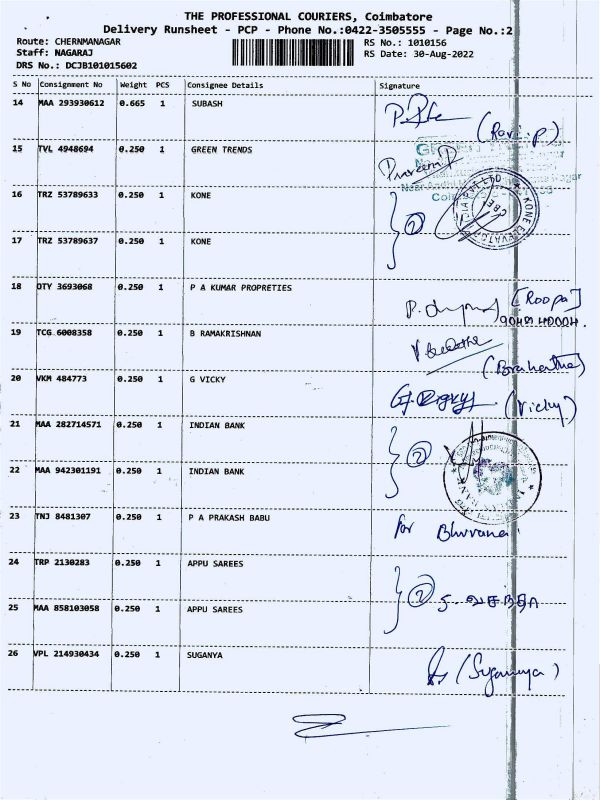 THE PROFESSIONAL COURIERS, Coimbatore
Delivery Runsheet - PCP - Phone No.:0422-3505555 - Page No.:2
Route: CHERNMANAGAR RS No.: 1010156
Staff: NAGARAJ RS Date: 30-Aug-2022
DRS No.: DCJB101015602
S No Consignment No Weight PCS Consignee Details Signature
14 MAA 293930612 0.665 1 SUBASH
(Ravi.P)
15 TVL 4948694 0.250 1 GREEN TRENDS
Praveen P
16 TRZ 53789633 0.250 1 KONE
2 KONE ELEVATOR CBE
17 TRZ 53789637 0.250 1 KONE
18 OTY 3693068 0.250 1 P A KUMAR PROPRETIES
[Roopa]
19 TCG 6008358 0.250 1 B RAMAKRISHNAN
20 VKM 484773 0.250 1 G VICKY
(Vicky)
21 MAA 282714571 0.250 1 INDIAN BANK
2
22 MAA 942301191 0.250 1 INDIAN BANK
23 TNJ 8481307 0.250 1 P A PRAKASH BABU
for Bhuvana
24 TRP 2130283 0.250 1 APPU SAREES
2
25 MAA 858103058 0.250 1 APPU SAREES
26 VPL 214930434 0.250 1 SUGANYA
(Suganya)